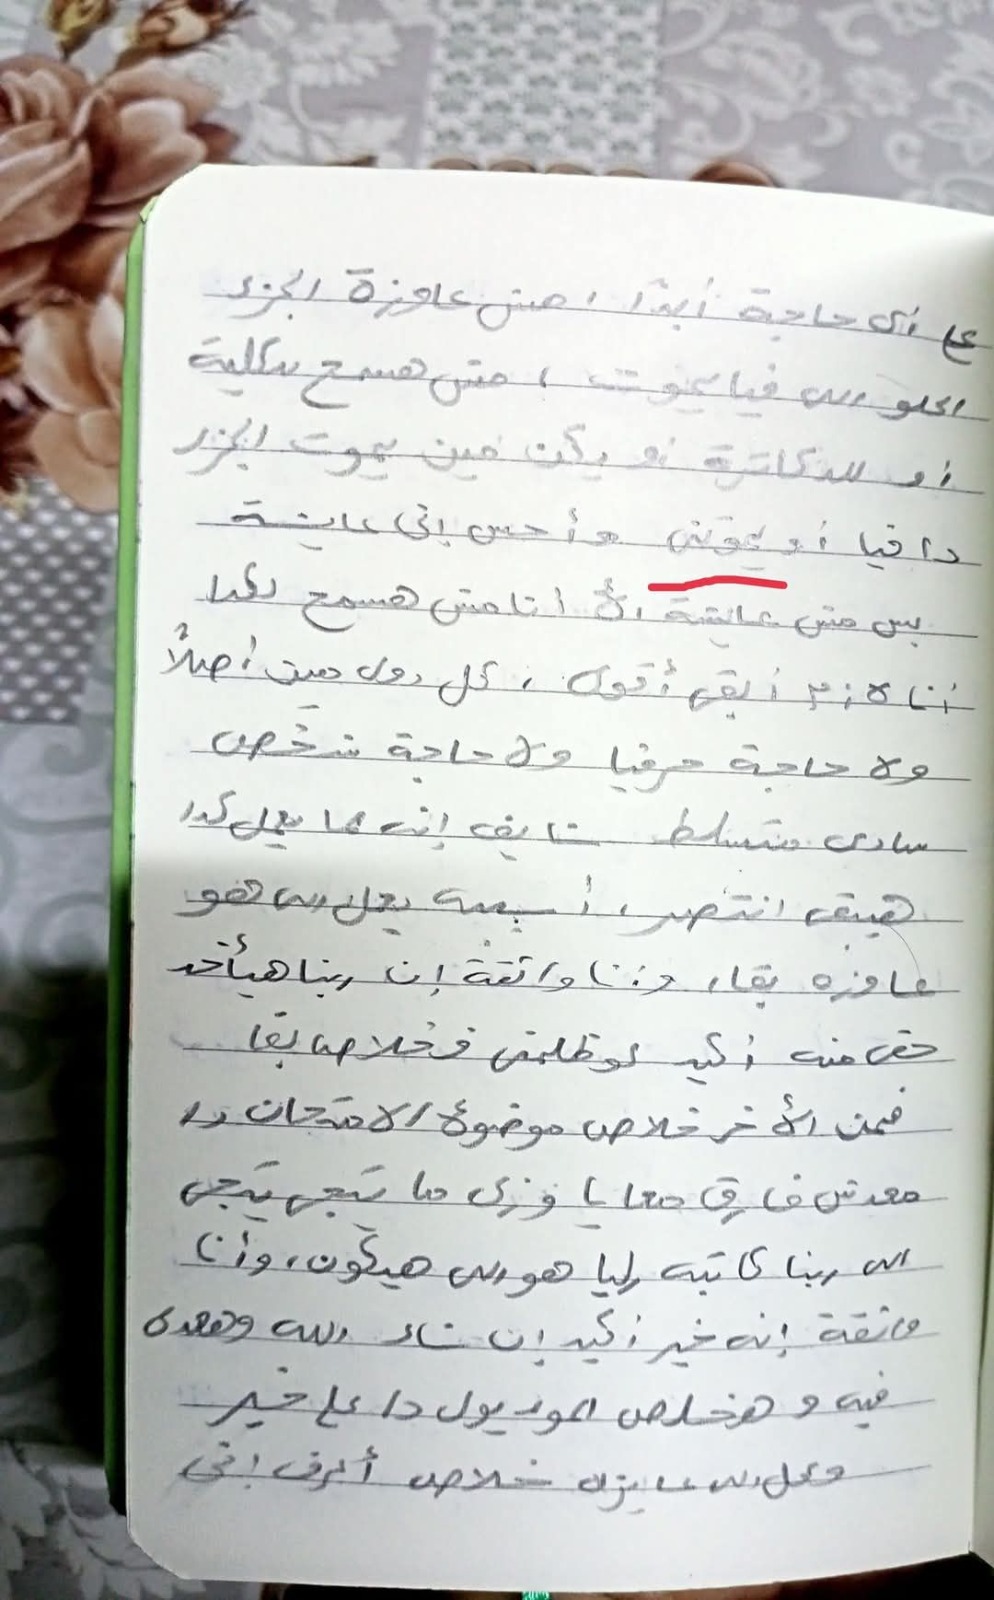 ع أى حاجة أبدًا، مش عاوزة الجزء
الحلو اللى فيا يموت، مش هسمح لكلية
أو للدكاترة أو يكن مين يموت الجزء
دا فيا أو يموتنى وأحس إنى عايشة
بس مش عايشة، لأ أنا مش هسمح لكدا
أنا لازم أبقى أقوى، كل دول ميين أصلاً
ولا حاجة حرفيا ولا حاجة شخص
سادى متسلط شايف إنه لما يعمل كدا
هيبقى انتصر، أسيبه يعمل اللى هو
عاوزه بقا، وأنا واثقة إن ربنا هيأخد
حقى منه أكيد لو ظلمنى فخلاص بقا
فمن الأخر خلاص موضوع الامتحان دا
معدش فارق معايا وزى ما تيجى تيجى
اللى ربنا كاتبه ليا هو اللى هيكون، وأنا
واثقة إنه خير أكيد إن شاء الله وهعدى
فيه وهخلص الموديول دا على خير
وكل اللى عايزاه خلاص أعرف إنى